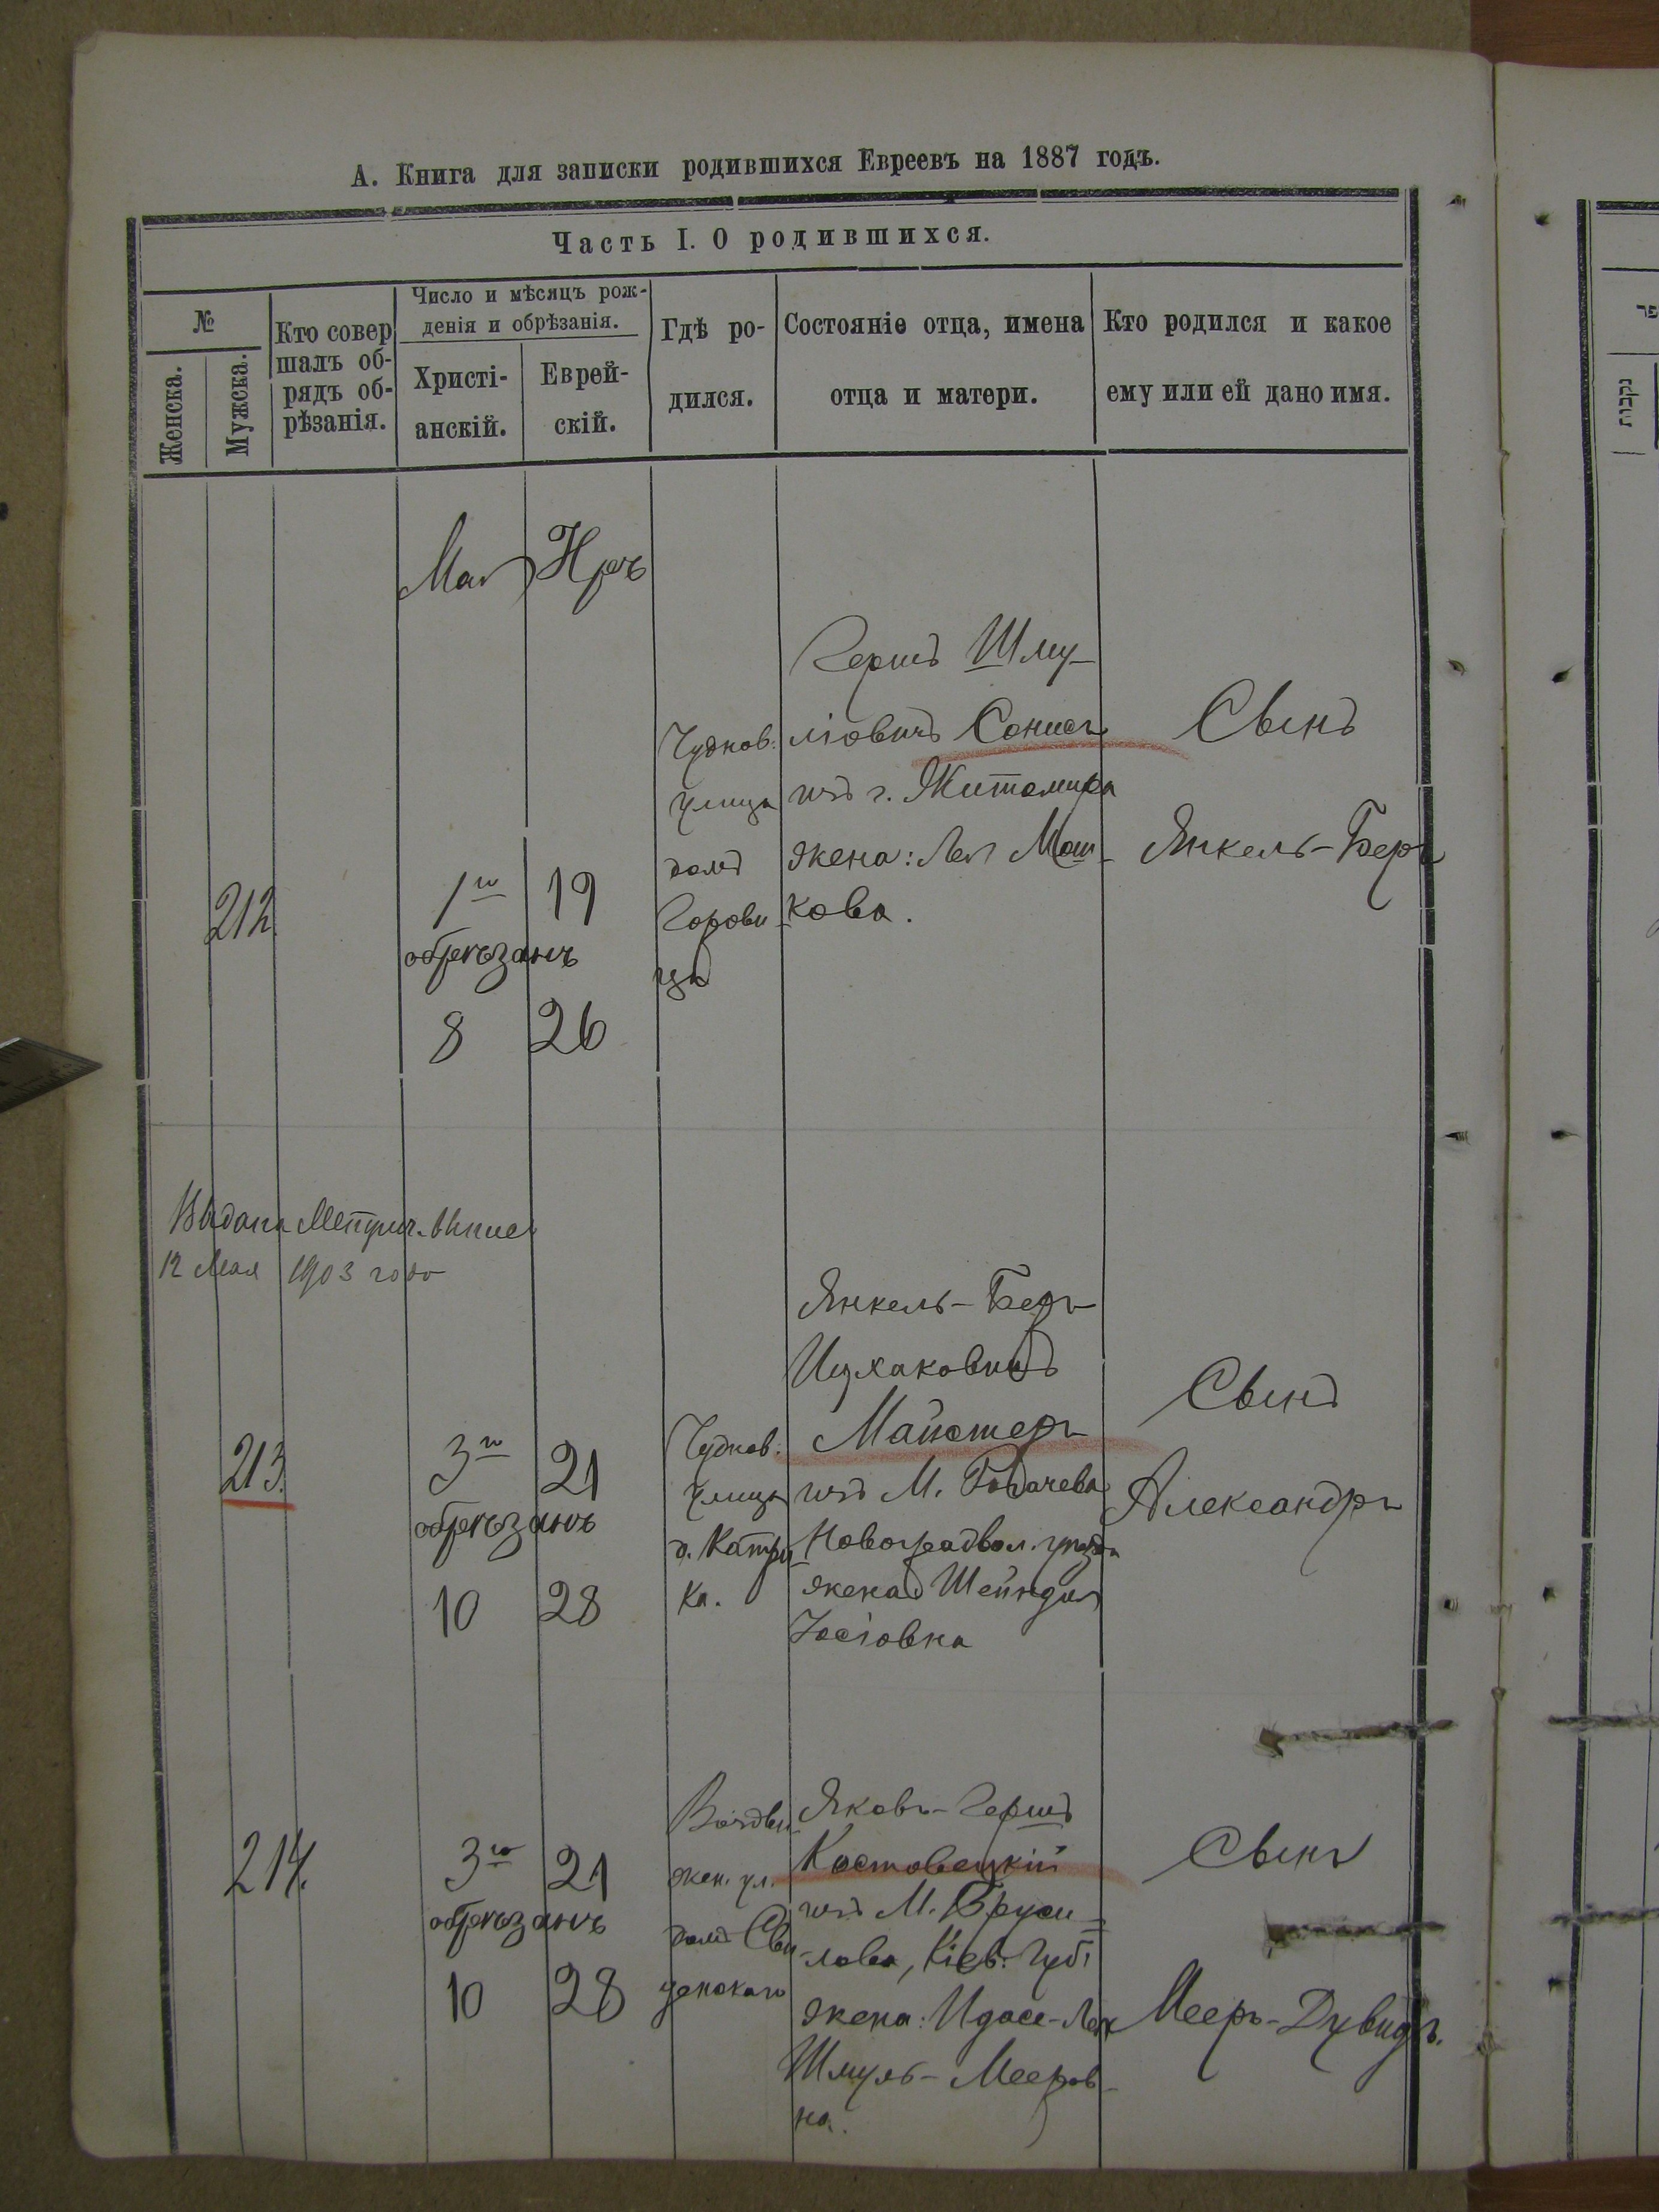 А. Книга для записки родившихся Евреевъ на 1887 годъ.
Часть I. О родившихся.
№
Женска.
Мужска.
Кто совер
шалъ об-
рядъ об-
рѣзанія.
Число и мѣсяцъ рож-
денія и обрѣзанія.
Христі-
анскій.
Еврей-
скій.
Гдѣ ро-
дился.
Состояніе отца, имена
отца и матери.
Кто родился и какое
ему или ей дано имя.
נקבות
Мая
212
1го
19
обрѣзанъ
8
26
Чуднов.
улица
домъ
Горови
ца
Гершъ Шму-
ліовичъ
изъ г. Житомира
жена: Лея Мош-
кова.
Сынъ
Янкель-Беръ
Выдана Метрич. выпись
12 Мая 1903 года
213.
3го
21
обрѣзанъ
10
28
Чуднов.
улица
д. Катри-
ка.
Янкель-Беръ
Ицхаковичъ
Майстеръ
изъ М.
Новоградвол. уѣзда
жена Шейндля
Іосіовна
Сынъ
Александръ
214.
3го
21
обрѣзанъ
10
28
Воздви-
жен. ул.
домъ Сви
Яковъ-Гершъ
Костовецкій
изъ М. Бруси-
лова, Кіев. Губ.
жена: Идасе-Лея
Шмуль-Мееров-
на.
Сынъ
Мееръ-Дувидъ.